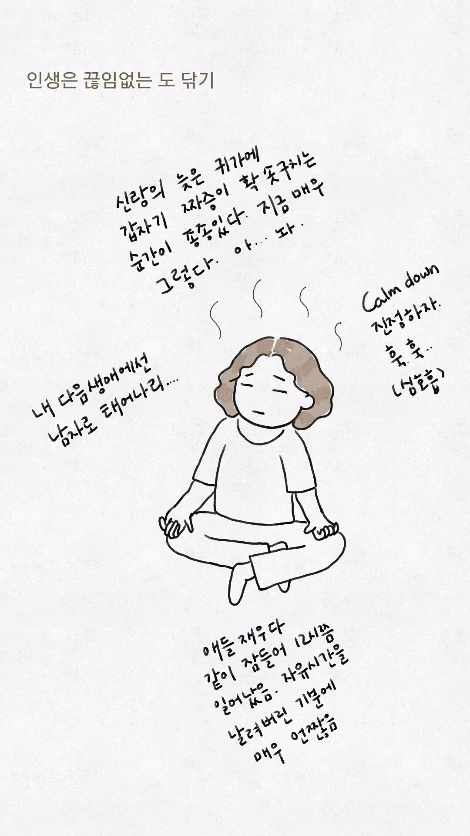 인생은 끊임없는 도 닦기
신랑의 늦은 귀가에
갑자기 짜증이 확 솟구치는
순간이 종종있다. 지금 매우
그렇다. 아... 놔.
Calm down
진정하자.
훅. 훅..
(심호흡)
내 다음생애에선
남자로 태어나리....
애들 재우다
같이 잠들어 12시쯤
일어났음. 자유시간을
날려버린 기분에
매우 언짢음